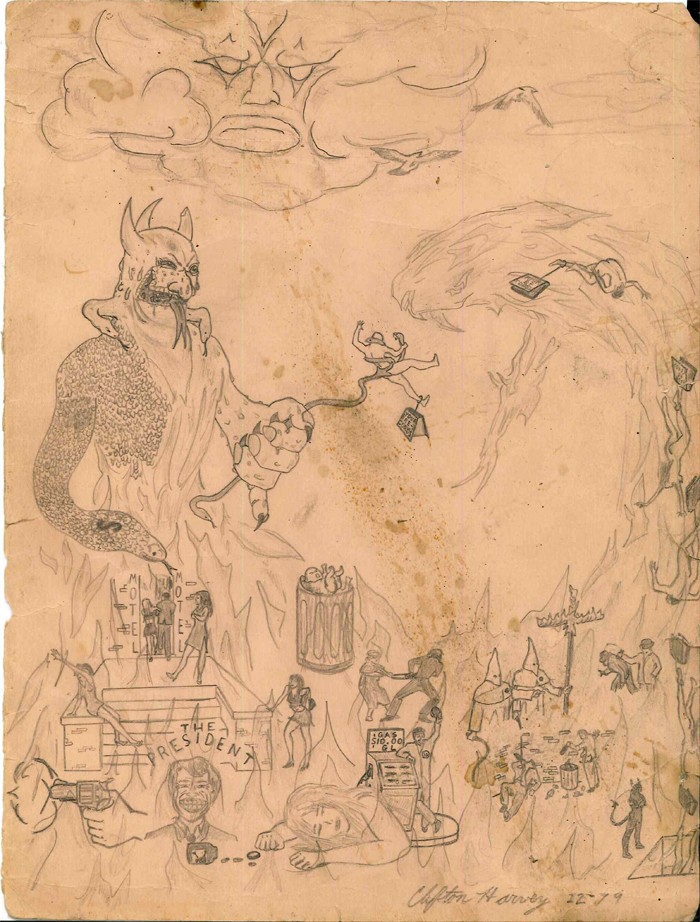 MOTEL
MOTEL
THE
PRESIDENT
GAS
$10.00
GL
Clifton Harvey